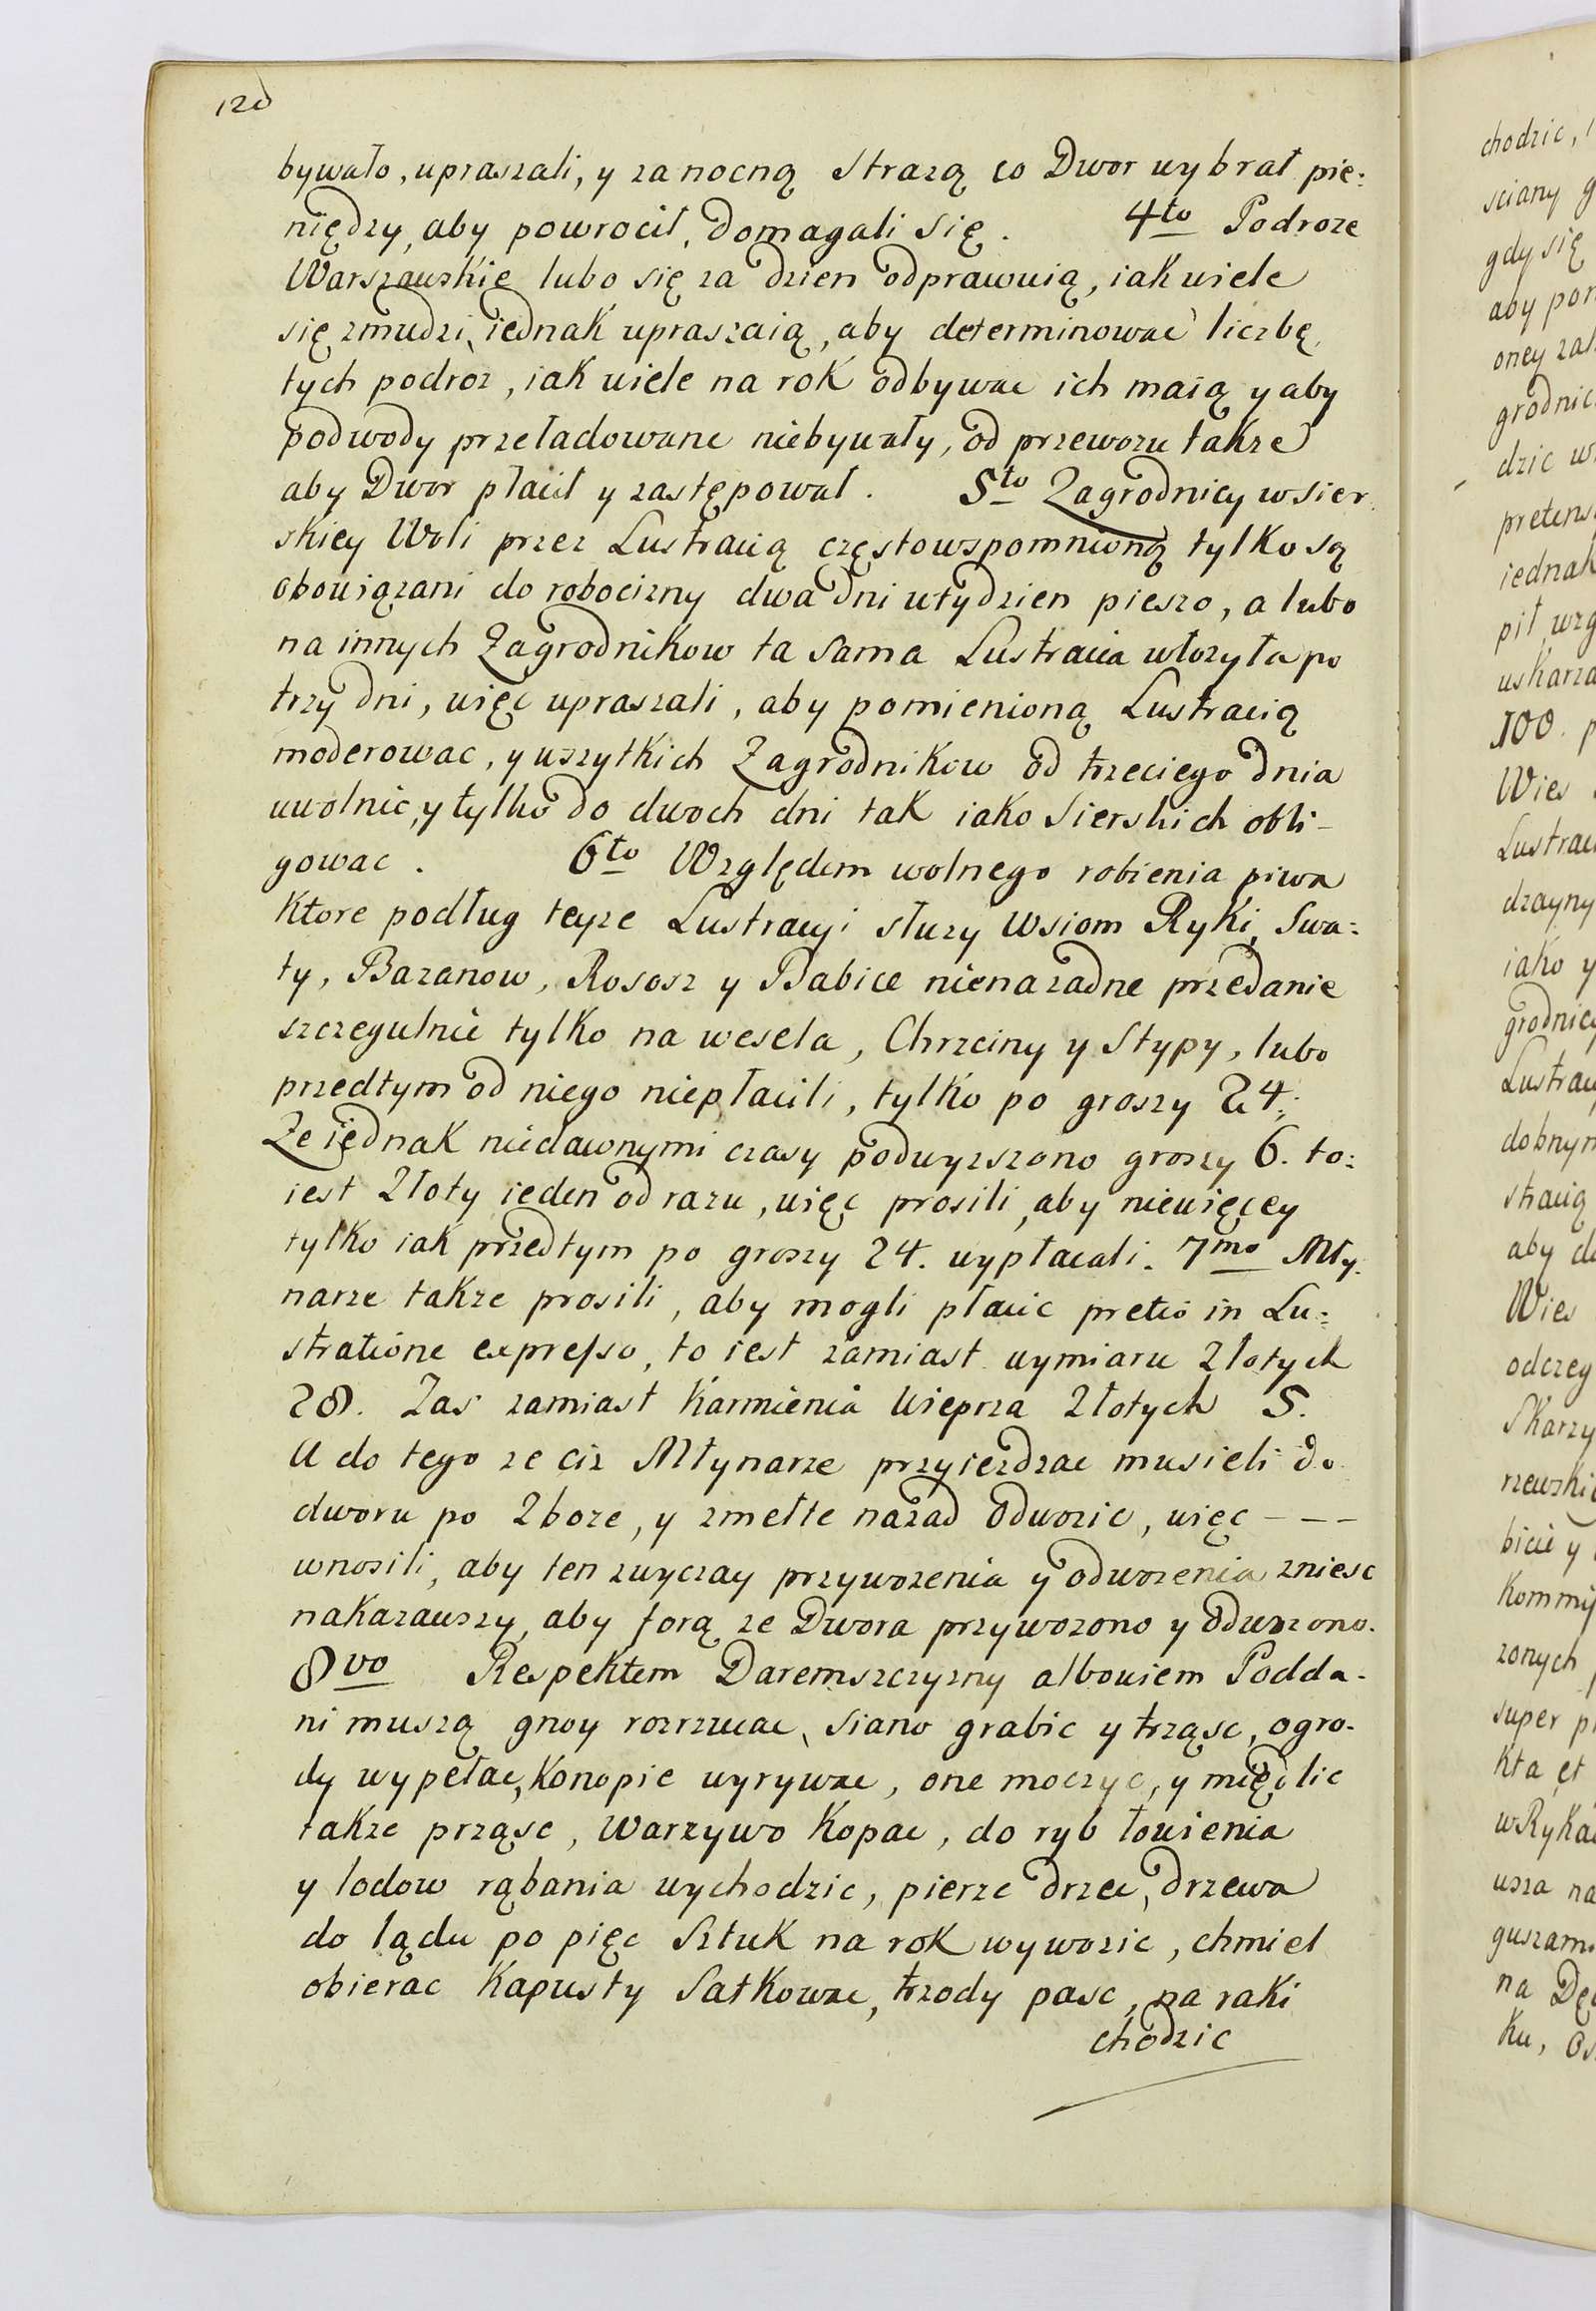 120
bywało, upraszali, y za nocną Strazą co Dwor wybrał pie:
niędzy, aby powrocił, domagali się. 4to Podroze
Warszawskie lubo się za dzien odprawuią, iak wiele
się zmudzi, iednak upraszaią, aby determinowac liczbę
tych podroz, iak wiele na rok odbywac ich maią y aby
podwody przeładowane niebywały, od przewozu takze
aby Dwor płacił y zastępował. 5to Zagrodnicy w Sier
skiey Woli przez Lustracią częstowspomnioną tylko są
obowiązani do robocizny dwa dni w tydzien pieszo, a lubo
na innych Zagrodnikow ta sama Lustracia włozyła po
trzy dni, więc upraszali, aby pomienioną Lustracią
moderowac, y wszytkich Zagrodnikow od trzeciego dnia
uwolnic, y tylko do dwoch dni tak iako Sierskich obli-
gowac. 6to Względem wolnego robienia piwa
Ktore podług teyze Lustracyi słuzy Wsiom Ryki, Swa:
ty, Bazanow, Rososz y Babice nienazadne przedanie
szczegulnie tylko na wesela, Chrzciny y Stypy, lubo
przedtym od niego niepłacili, tylko po groszy 24:
Ze iednak niedawnymi czasy podwyzszono groszy 6. to:
iest Złoty ieden od razu, więc prosili, aby niewięcey
tylko iak przedtym po groszy 24. wypłacali. 7mo Mły:
narze takze prosili, aby mogli płacic pretio in Lu:
stratione expresso, to iest zamiast wymiaru Złotych
28. Zas zamiast karmienia Wieprza Złotych 5.
A do tego ze ciz Młynarze przyiezdzac musieli do
dworu po Zboze, y zmełte nazad odwozic, więc ---
wnosili, aby ten zwyczay przywozenia y odwozenia zniesc
nakazawszy, aby forą ze Dwora przywozono y odwozono.
8vo Respektem Daremszczyzny albowiem Podda-
ni muszą gnoy rozrzucac, Siano grabic y trząsc, ogro-
dy wypełac, Konopie wyrywac, one moczyc, y międlic
takze prząsc, Warzywo Kopac, do ryb łowienia
y lodow rąbania wychodzic, pierze drzec, drzewa
do lądu po pięc Sztuk na rok wywozic, chmiel
obierac Kapusty Satkowac, trzody pasc, na raki
chodzic
chodzic,
sciany
gdy się
aby
oney
dzic
iednak
100.
Wies
drzayny
iako y
grodnicy
aby
Wies
odczeg
bicie y
zonych
super
kta et
na
Ku,